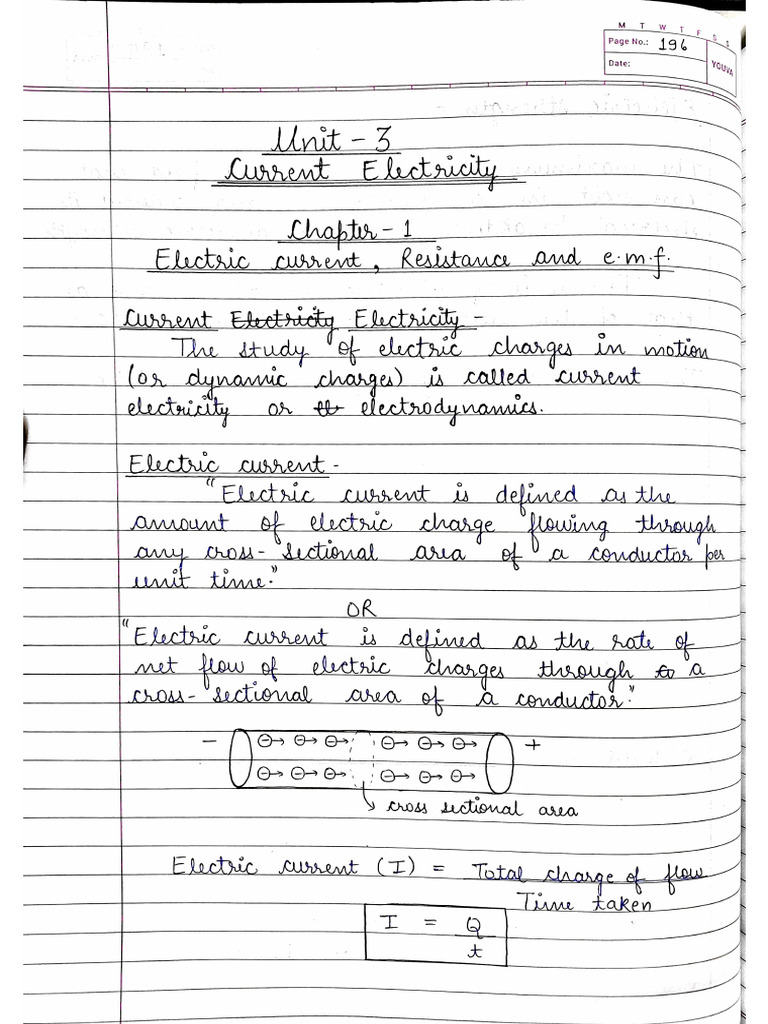 M T W T F S S
Page No.: 196
Date:
YOUVA
Unit - 3
Current Electricity
Chapter - 1
Electric current, Resistance and e.m.f.
Current Electricity Electricity -
The study of electric charges in motion
(or dynamic charges) is called current
electricity or electrodynamics.
Electric current -
"Electric current is defined as the
amount of electric charge flowing through
any cross-sectional area of a conductor per
unit time."
OR
"Electric current is defined as the rate of
net flow of electric charges through to a
cross-sectional area of a conductor."
- ⊖→ ⊖→ ⊖→ ⊖→ ⊖→ ⊖→ +
⊖→ ⊖→ ⊖→ ⊖→ ⊖→ ⊖→
cross sectional area
Electric current (I) = Total charge of flow
Time taken
I = Q
t